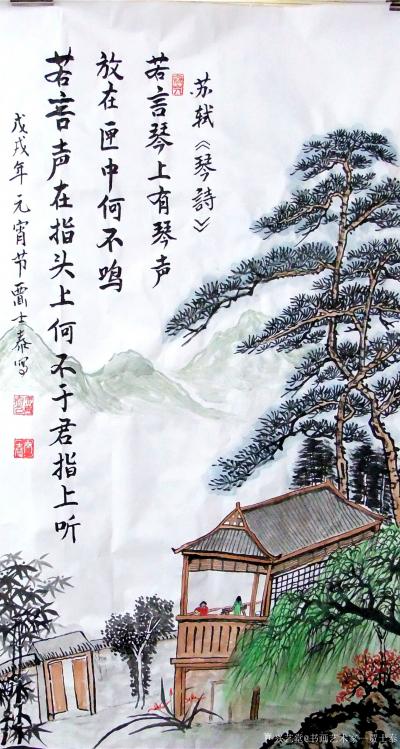 苏轼《琴詩》
若言琴上有琴声
放在匣中何不鸣
若言声在指头上何不于君指上听
戊戌年元宵节雷士泰写
@书画艺术家一雷士泰